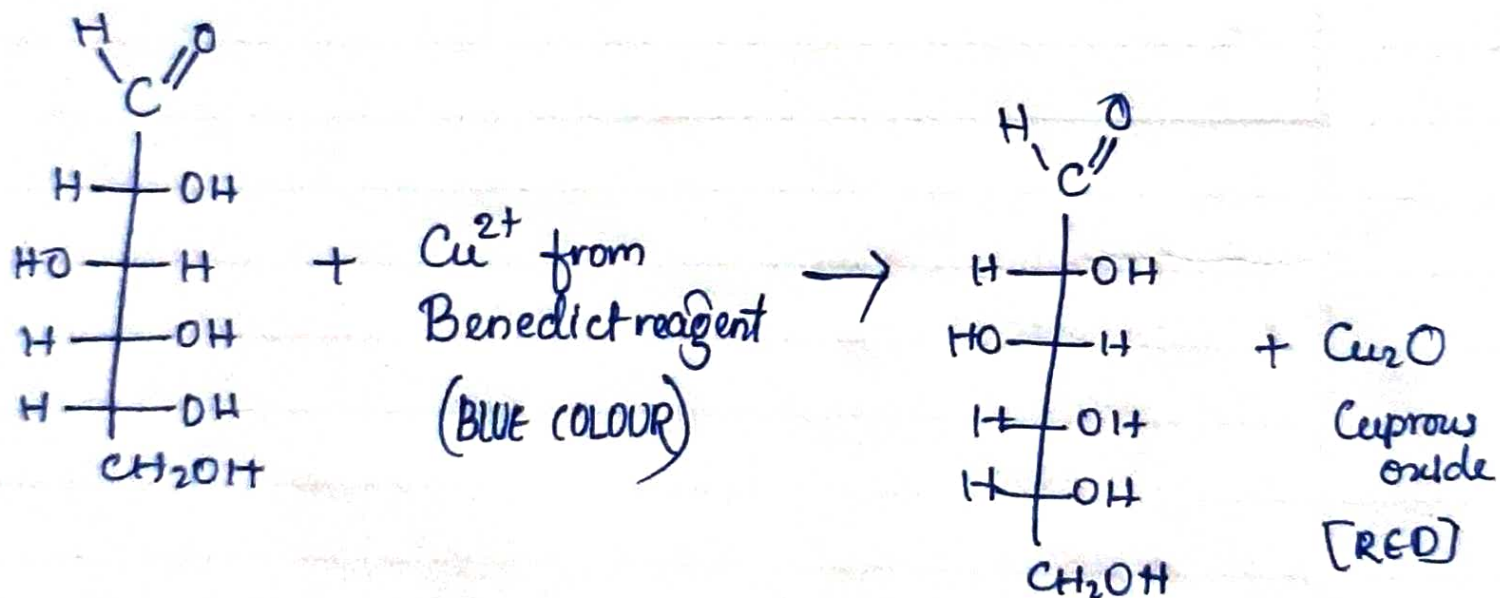 H O
C
H OH
HO H
H OH
H OH
CH₂OH
+
Cu²⁺ from
Benedict reagent
(BLUE COLOUR)
→
H O
C
H OH
HO H
H OH
H OH
CH₂OH
+ Cu₂O
Cuprous
oxide
[RED]